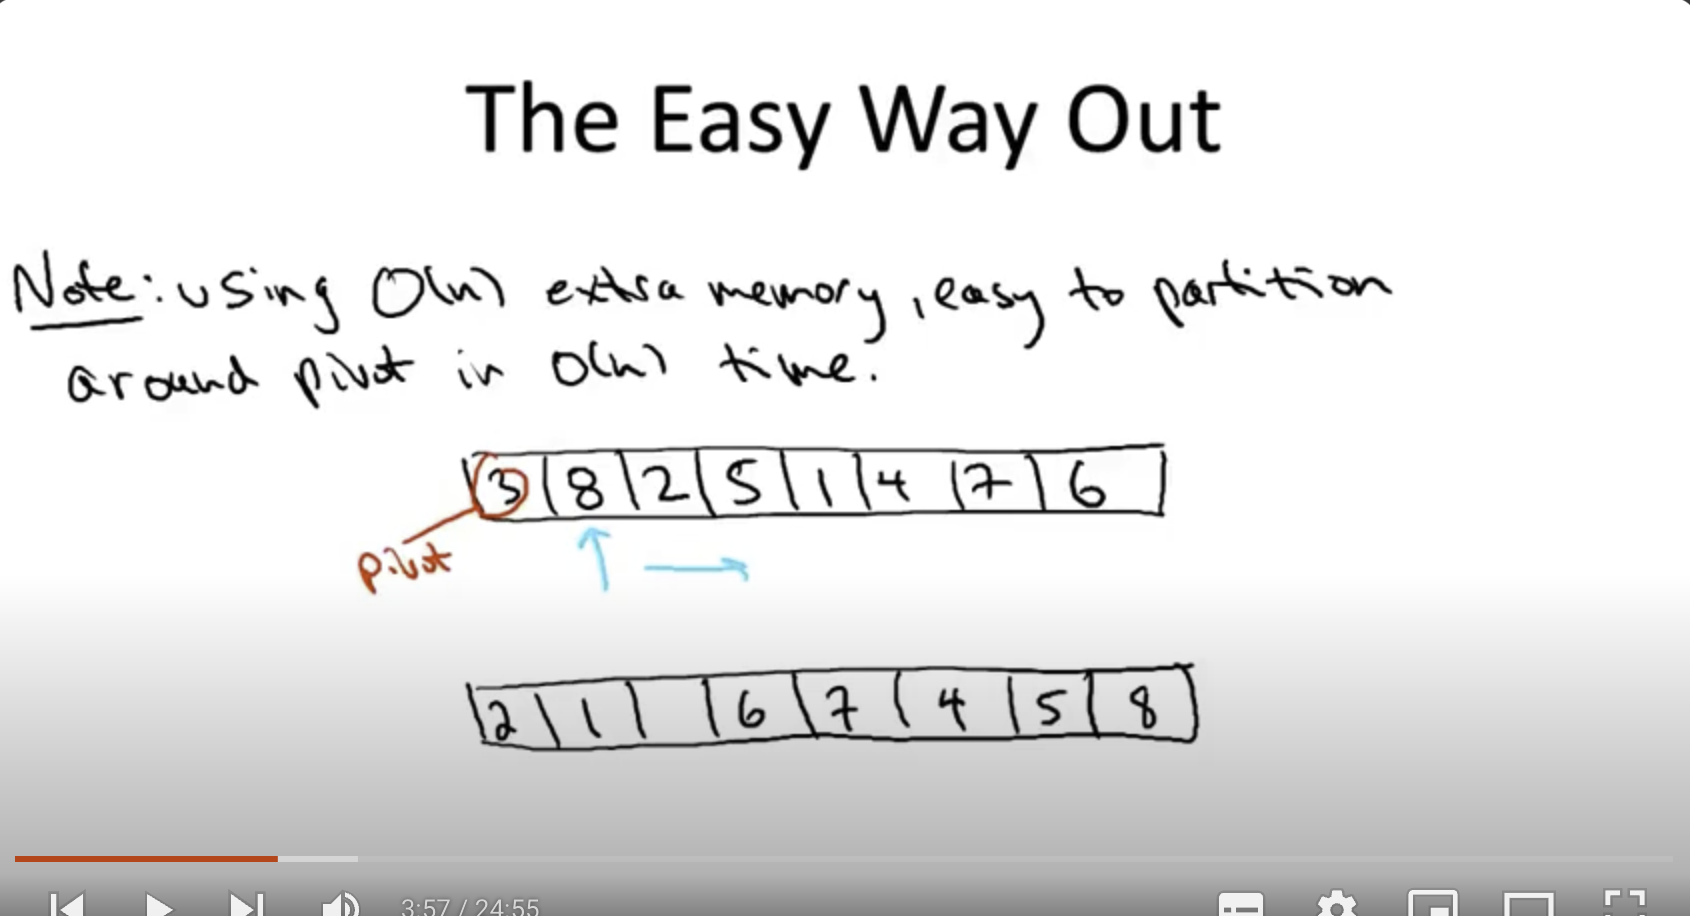 The Easy Way Out
Note: using O(n) extra memory, easy to partition
around pivot in O(n) time.
3 | 8 | 2 | 5 | 1 | 4 | 7 | 6
pivot
2 | 1 | | 6 | 7 | 4 | 5 | 8
3:57 / 24:55